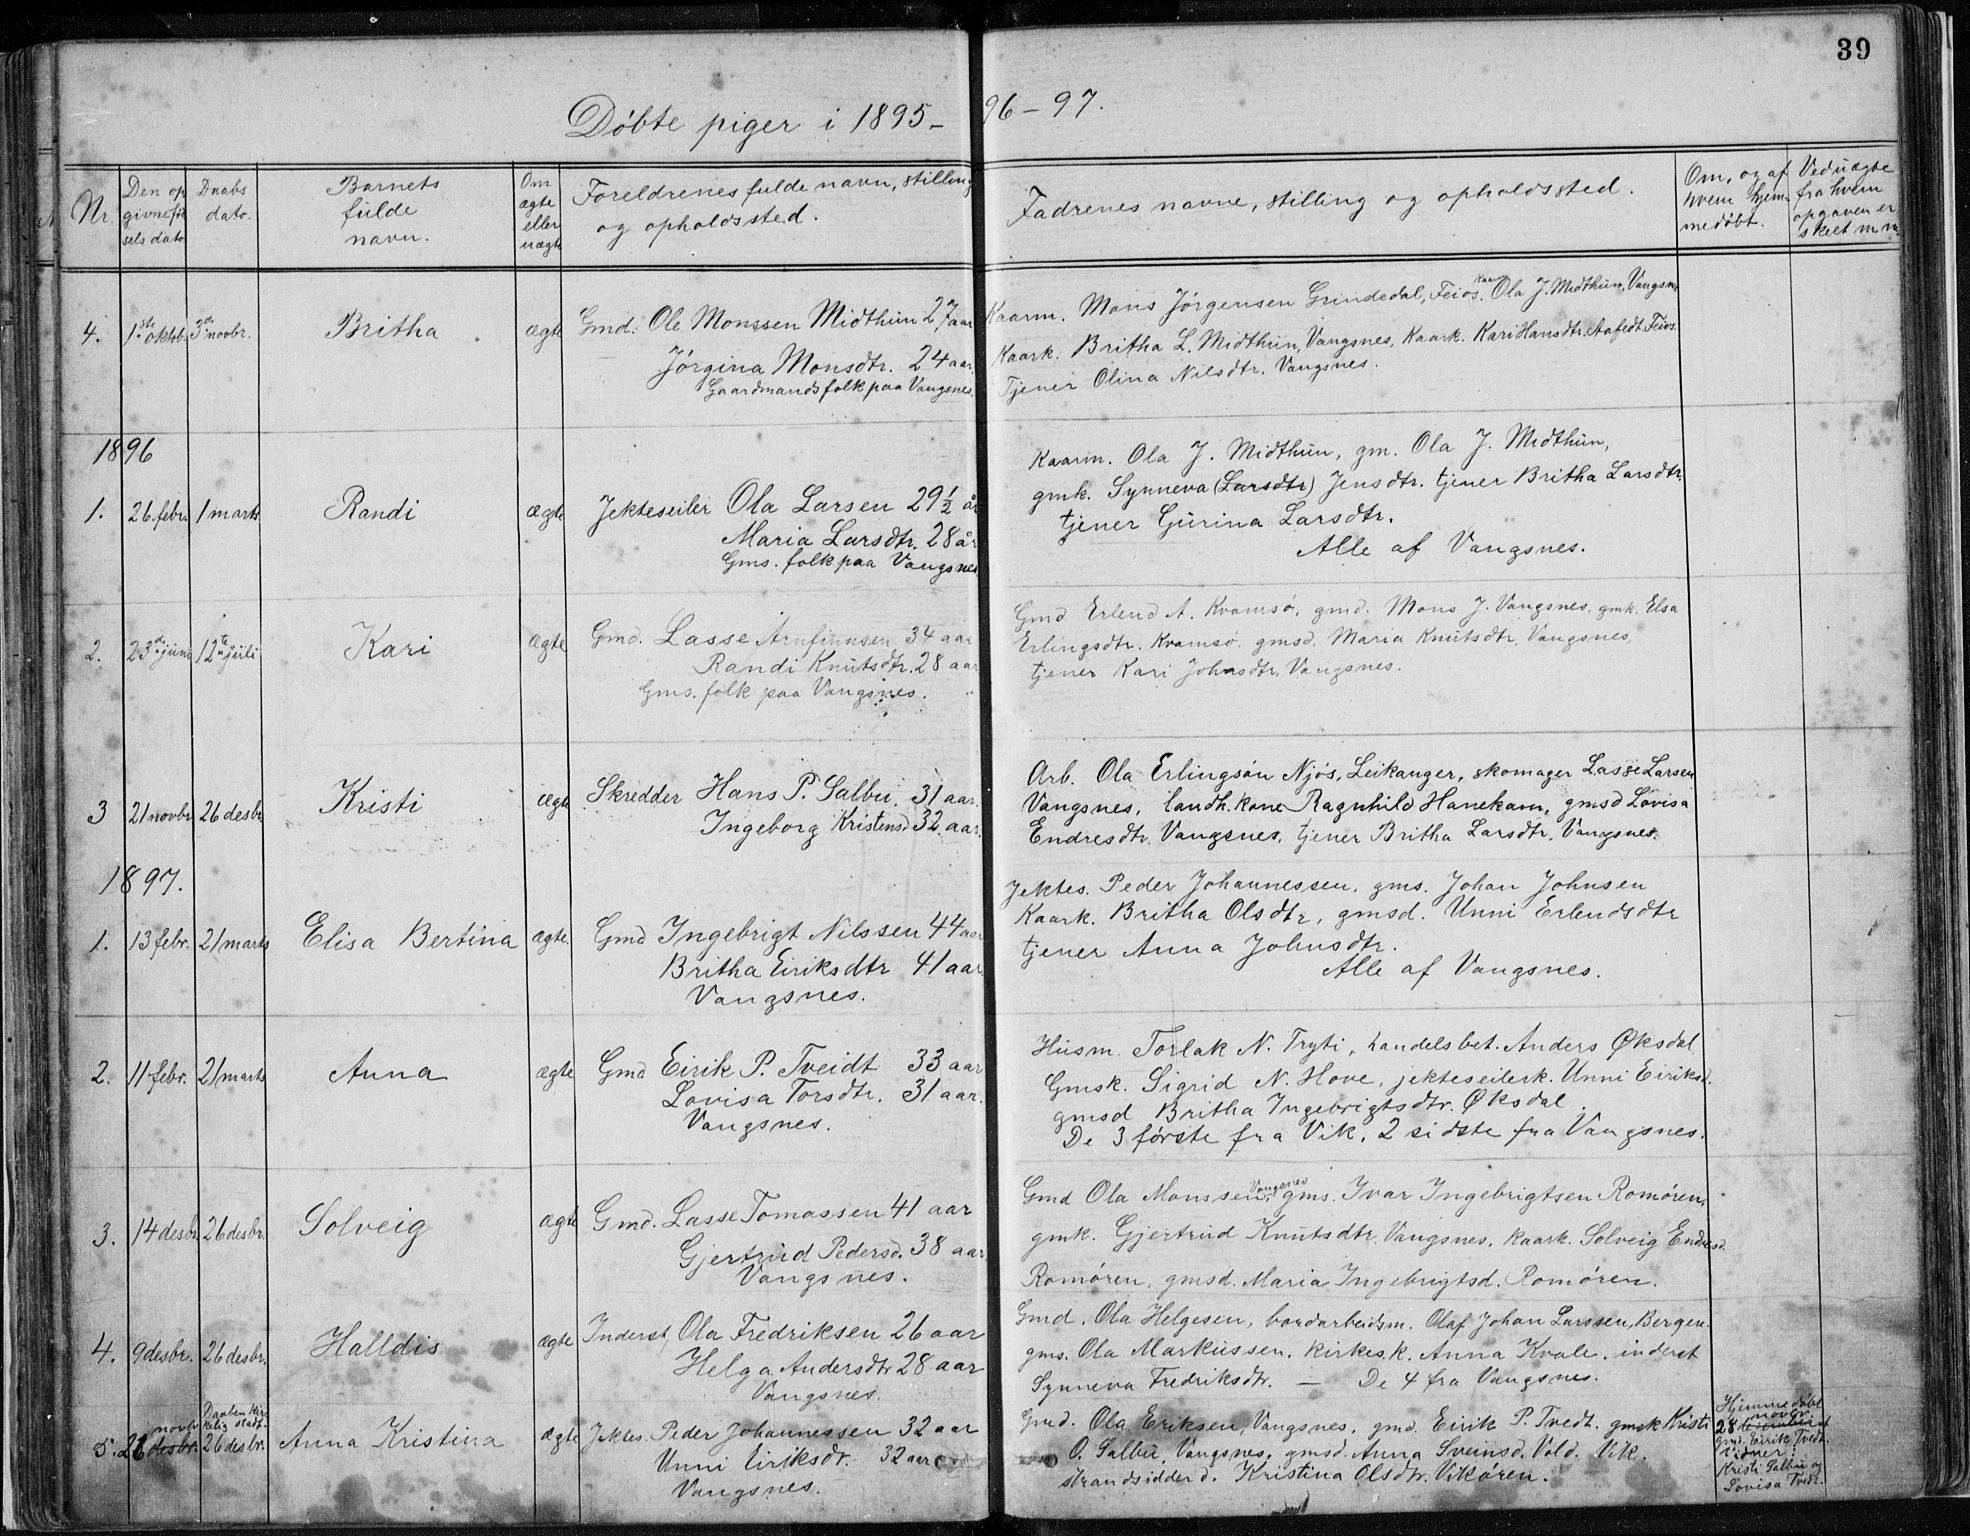 39
Døbte piger i 1895-96-97.
Nr.
Den op
givne fød
sels dato
Daabs
dato.
Barnets
fulde
navn.
Om
ægte
eller
uægte
Foreldrenes fulde navn, stilling
og opholdssted.
Fadrenes navne, stilling og opholdssted.
Om, og af
hvem hjem-
medøbt.
Ved uægte
fra hvem
opgaven er
skeet m m.
4. 1ste oktob. 3die novbr. Britha ægte
Gmd. Ole Monssen Midthun 27 aar
Jørgina Monsdtr. 24 aar.
Gaardmandsfolk paa Vangsnes.
Kaarm. Mons Jørgensen Grindedal, Feios. Kaarm. Ola J. Midthun, Vangsn.
Kaark. Britha L. Midthun, Vangsnes, Kaark. Kari Hansdtr. Aafedt, Feios.
Tjener Olina Nilsdtr. Vangsnes.
1896
1. 26. febr. 1 marts Randi ægte
Jekteseiler Ola Larsen 29 1/2 år
Maria Larsdtr. 28 år
Gms. folk paa Vangsnes
Kaarm. Ola J. Midthun, gm. Ola J. Midthun,
gmk. Synneva (Larsdtr) Jensdtr. tjener Britha Larsdtr.
tjener Gurina Larsdtr.
Alle af Vangsnes.
2. 23de juni 12te juli Kari ægte
Gmd. Lasse Arnfinnsen 34 aar
Randi Knutsdtr. 28 aar
Gms. folk paa Vangsnes.
Gmd Erlend A. Kvamsø, gmd. Mons J. Vangsnes, gmk. Elsa
Erlingsdtr. Kvamsø. gmsd. Maria Knutsdtr. Vangsnes
tjener Kari Johnsdtr, Vangsnes.
3 21 novbr 26 desbr Kristi ægte
Skredder Hans P. Salbu. 31 aar.
Ingeborg Kristensd 32. aar.
Arb. Ola Erlingsøn Njøs, Leikanger, skomager Lasse Larsen
Vangsnes, landh. kone Ragnhild Hanekam, gmsd Lovisa
Endresdtr. Vangsnes, tjener Britha Larsdtr. Vangsnes.
1897.
1. 13 febr. 21 marts Elisa Bertina ægte.
Gmd Ingebrigt Nilssen 44 aar
Britha Eiriksdtr 41 aar
Vangsnes.
Jektes. Peder Johannessen, gms. Johan Johnsen
Kaark. Britha Olsdtr, gmsd. Unni Erlendsdtr
tjener Anna Johnsdtr.
Alle af Vangsnes.
2. 11 febr. 21 marts Anna ægte
Gmd Eirik P. Tveidt 33 aar
Lovisa Torsdtr. 31 aar.
Vangsnes.
Husm. Torlak N. Tryti, handelsbet. Anders Øksdal
Gmsk. Sigrid N. Hove, jekteseilerk. Unni Eiriksd.
gmsd Britha Ingebrigtsdtr. Øksdal.
De 3 første fra Vik, 2 sidste fra Vangsnes.
3. 14 desbr. 26 desbr. Solveig ægte
Gmd. Lasse Tomassen 41 aar
Gjertrud Pedersd. 38 aar
Vangsnes.
Gmd Ola Monssen, Vangsnes gms. Ivar Ingebrigtsen Romøren,
gmk. Gjertrud Knutsdtr, Vangsnes, kaark. Solveig Endresd.
Romøren, gmsd. Maria Ingebrigtsd. Romøren.
4. 9 desbr. 26 desbr. Halldis ægte
Inderst, Ola Fredriksen 26 aar
Helga Andersdtr 28 aar
Vangsnes.
Gmd. Ola Helgesen, bordarbeidsm. Olaf Johan Larssen, Bergen.
gms. Ola Markussen. Kirkes.k. Anna Kvale, inderst
Synneva Fredriksdtr. — De 4 fra Vangsnes.
Daaben kir-
kelig stadf.
5. 27 desbr. novbr 26 desbr. Anna Kristina ægte
Jektes. Peder Johannessen 32 aar
Unni Eiriksdr. 32 aar
Vangsnes.
Gmd. Ola Eriksen, Vangsnes, gmd. Eirik P. Tvedt. gmsk Kristi
O. Salbu, Vangsnes, gmsd. Anna Sveinsd. Vold. Vik.
strandsidderd. Kristina Olsdtr. Vikøren.
Hjemmedøbt
novbr
28
Gmd. Eirik Tvedt.
Vidner:
Kristi Salbu og
Lovisa Tvedt.